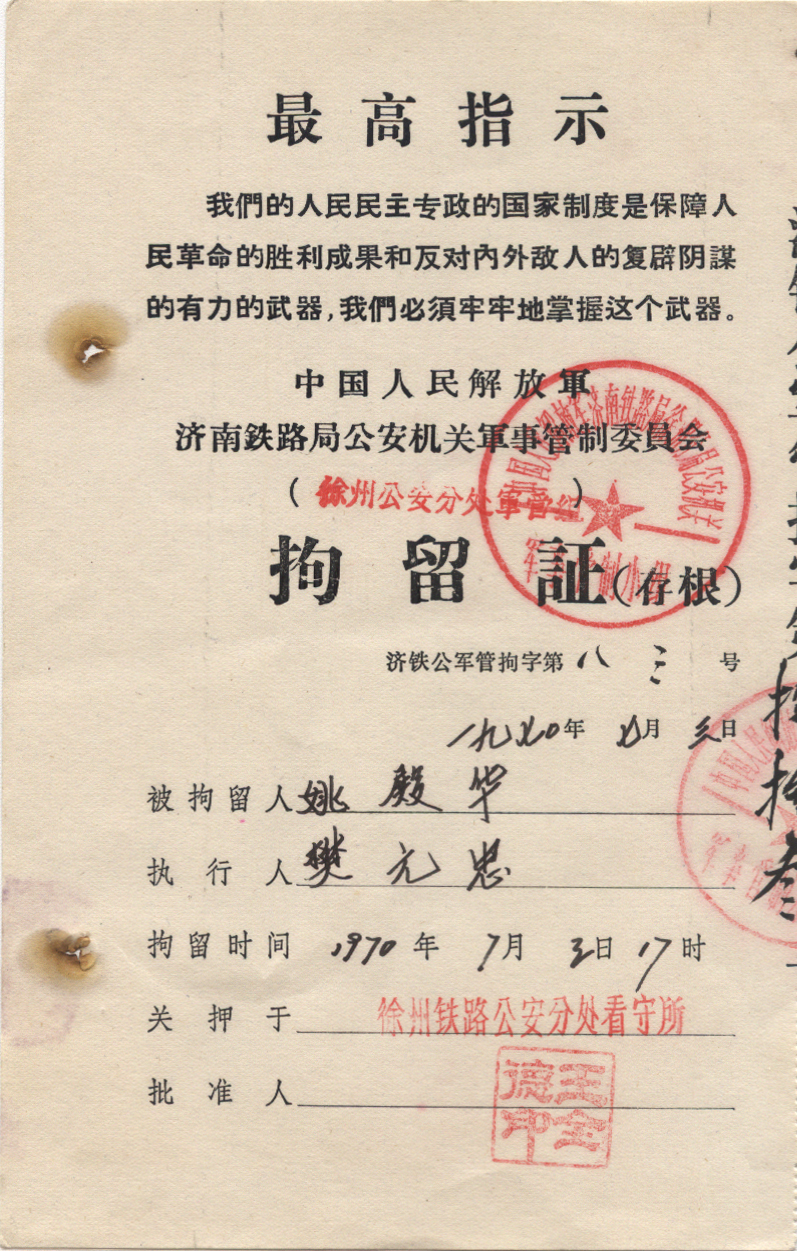 最高指示
我們的人民民主专政的国家制度是保障人
民革命的胜利成果和反对內外敌人的复辟阴謀
的有力的武器,我們必須牢牢地掌握这个武器。
中国人民解放軍
济南鉄路局公安机关軍事管制委員会
(徐州公安分处軍管組)
拘留証(存根)
济铁公军管拘字第八三号
一九七〇年七月三日
被拘留人姚殿华
执行人樊元忠
拘留时间 1970年7月3日17时
关押于徐州铁路公安分处看守所
批准人